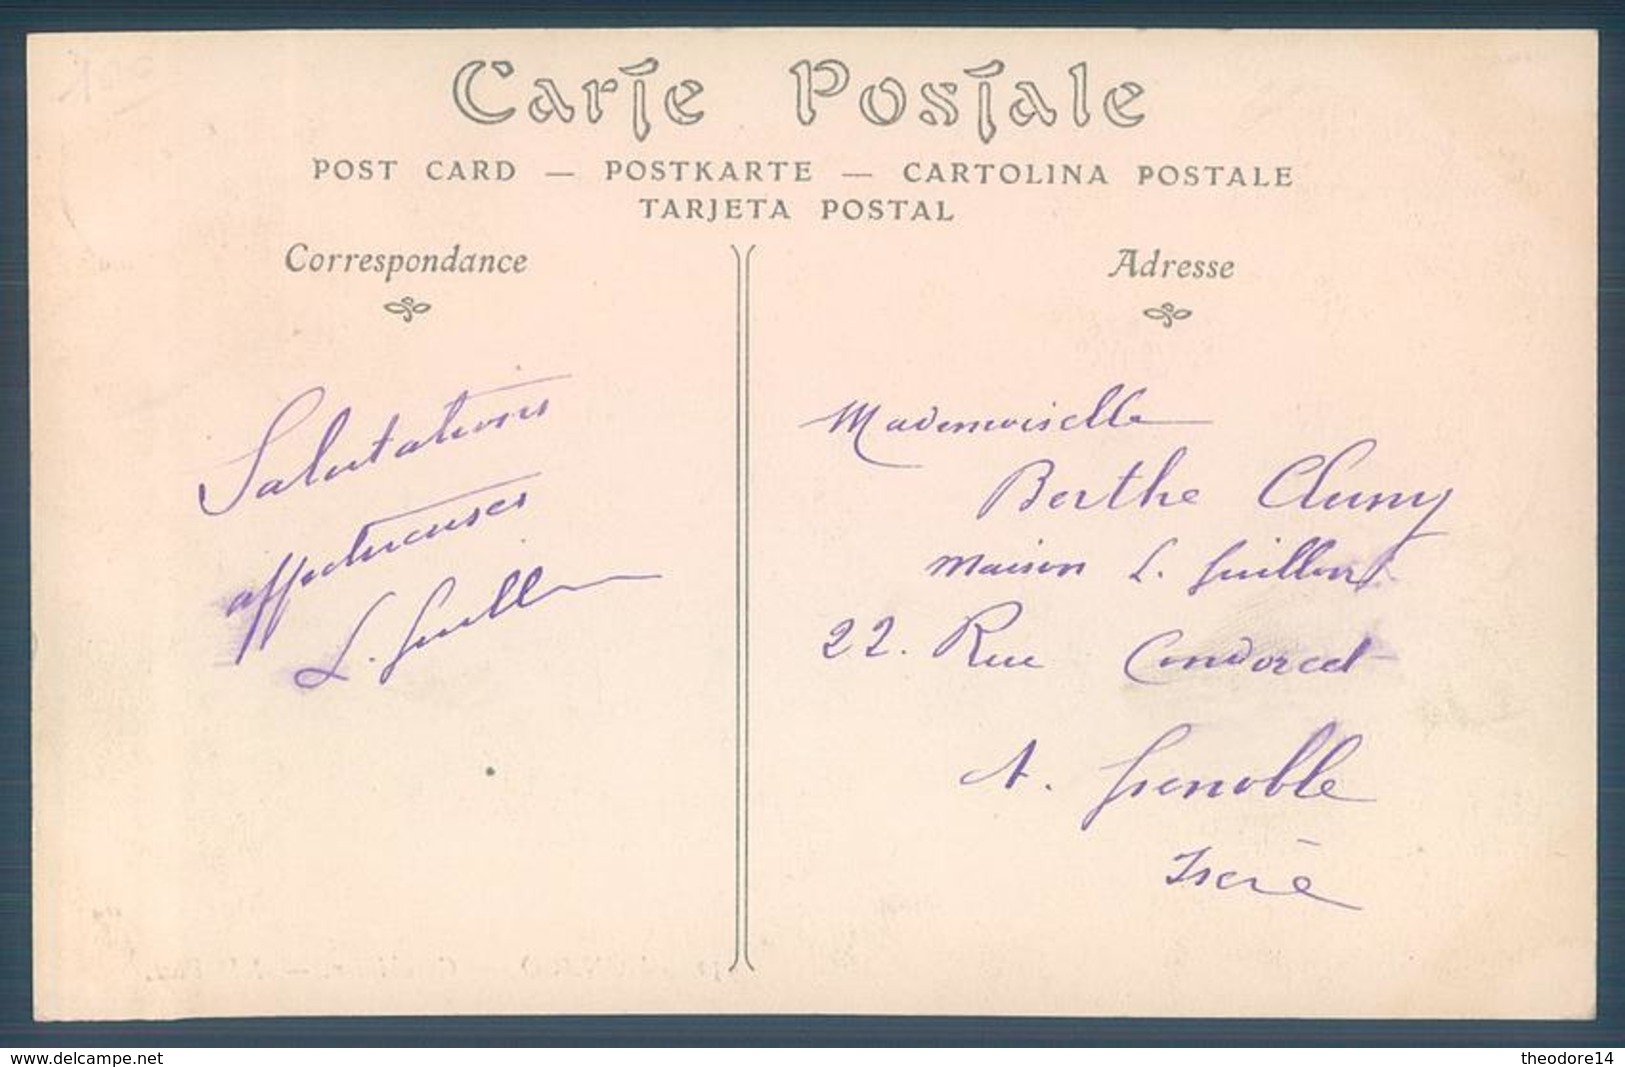 Carte Postale
POST CARD — POSTKARTE — CARTOLINA POSTALE
TARJETA POSTAL
Correspondance
Salutations
affectueuses
L. Guillon
Adresse
Mademoiselle
Berthe Cluny
Maison L. Guillon
22. Rue Condorcet
A. Grenoble
Isère
www.delcampe.net
theodore14